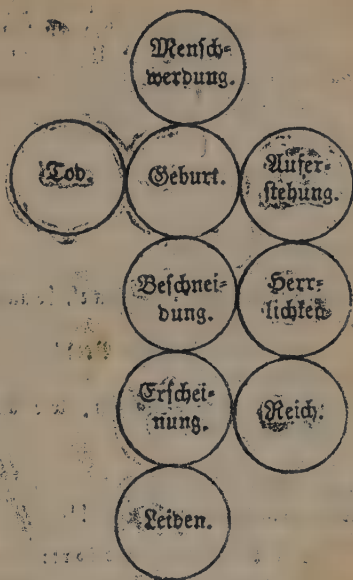 Mensch-
werdung.
Tod.
Geburt.
Aufer-
stehung.
Beschnei-
dung.
Herr-
lichkeit
Erschei-
nung.
Reich.
Leiden.